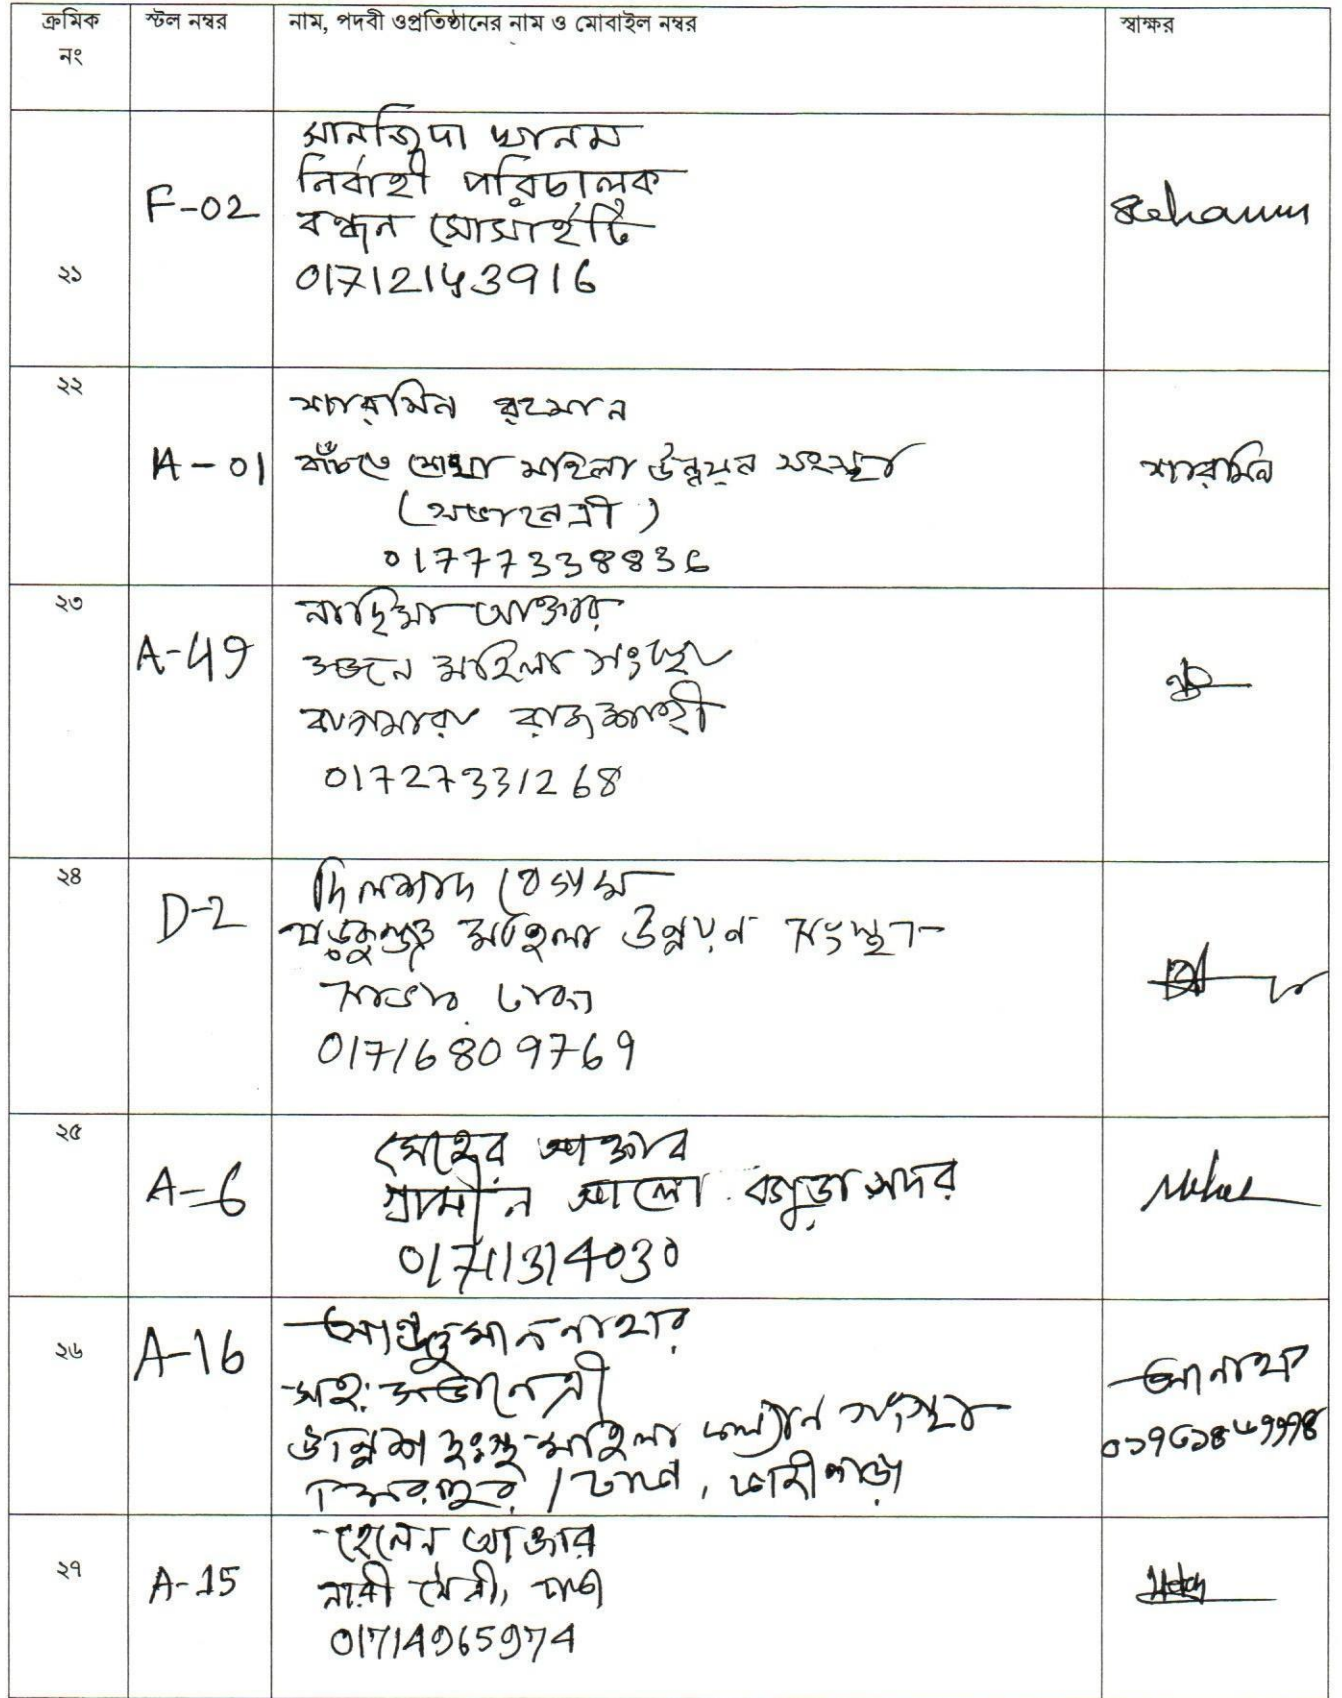 ক্রমিক নং
স্টল নম্বর
নাম, পদবী ওপ্রতিষ্ঠানের নাম ও মোবাইল নম্বর
স্বাক্ষর
২১
F-02
সানজিদা খানম
নির্বাহী পরিচালক
বন্ধন সোসাইটি
01712143916
২২
A-01
শারমিন রহমান
বাঁচতে শেখা মহিলা উন্নয়ন সংস্থা
(সভানেত্রী)
01777338836
শারমিন
২৩
A-49
নাছিমা আক্তার
মহিলা সংস্থা
বাগমারা রাজশাহী
01727331268
২৪
D-2
দিলশাদ বেগম
মহিলা উন্নয়ন সংস্থা
সাভার ঢাকা
01716809769
২৫
A-6
মেহের আক্তার
গ্রামীন আলো বগুড়া সদর
01711314030
২৬
A-16
নাহার
সহ: সভানেত্রী
দুঃস্থ মহিলা কল্যান সংস্থা
ঢাকা,
২৭
A-15
হেলেন আক্তার
নারী মৈত্রী, ঢাকা
01714965974